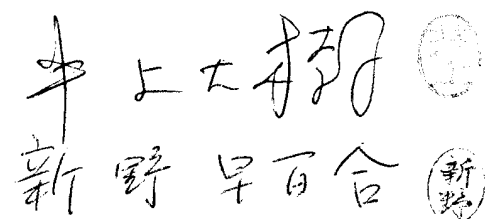 上大樹
新野 早百合 新野